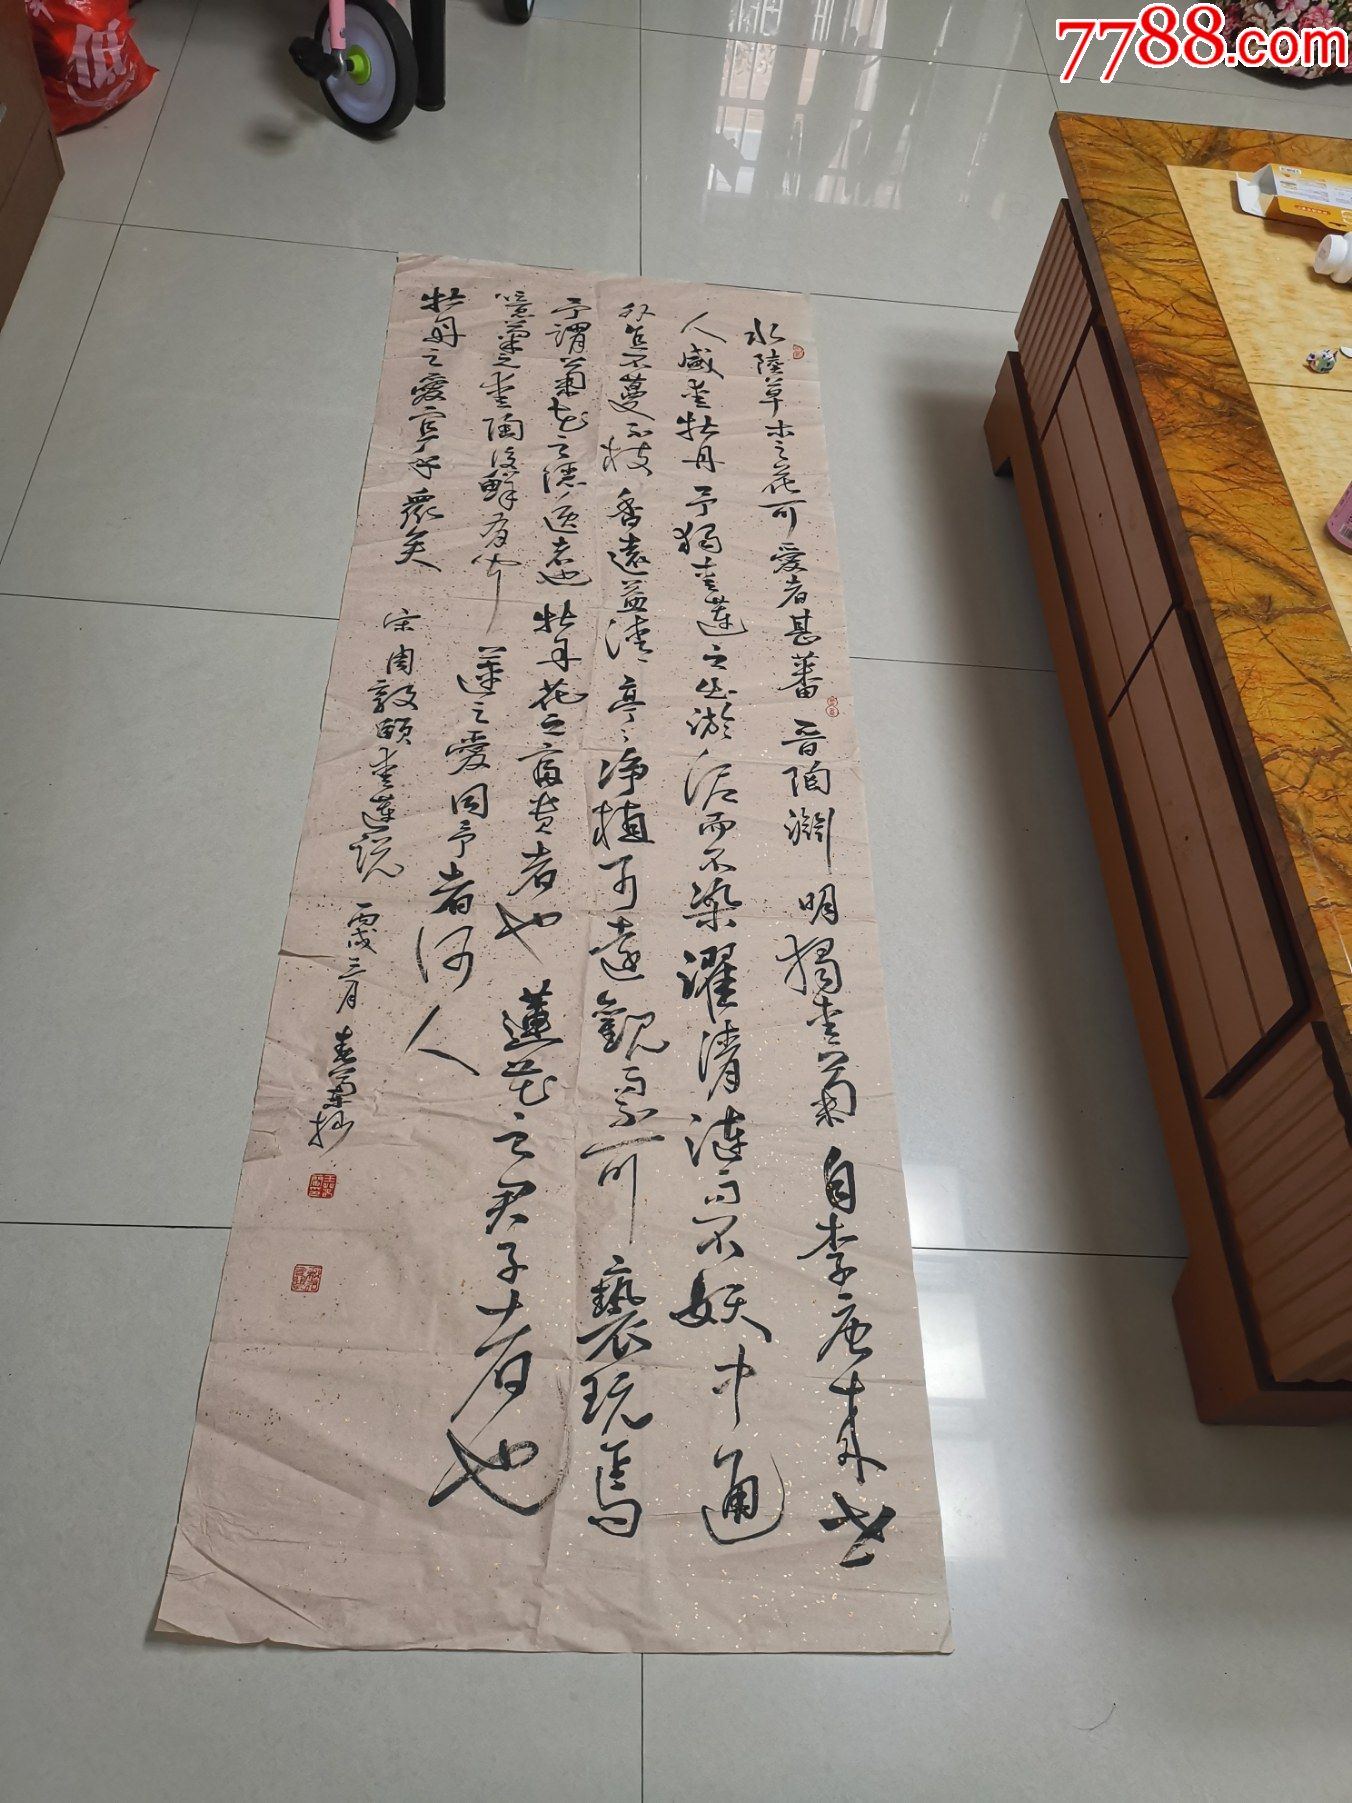 7788.com
低
水陸草木之花可愛者甚蕃晋陶淵明獨爱菊自李唐来世
人盛爱牡丹予獨爱蓮之出淤泥而不染濯清漣而不妖中通
外直不蔓不枝香遠益清亭々净植可遠觀而不可褻玩焉
予謂菊花之隱逸者也牡丹花之富貴者也蓮花之君子者也
噫菊之爱陶後鮮有聞蓮之愛同予者何人
牡丹之愛宜乎衆矣 宋周敦頤爱蓮説 丙戌三月